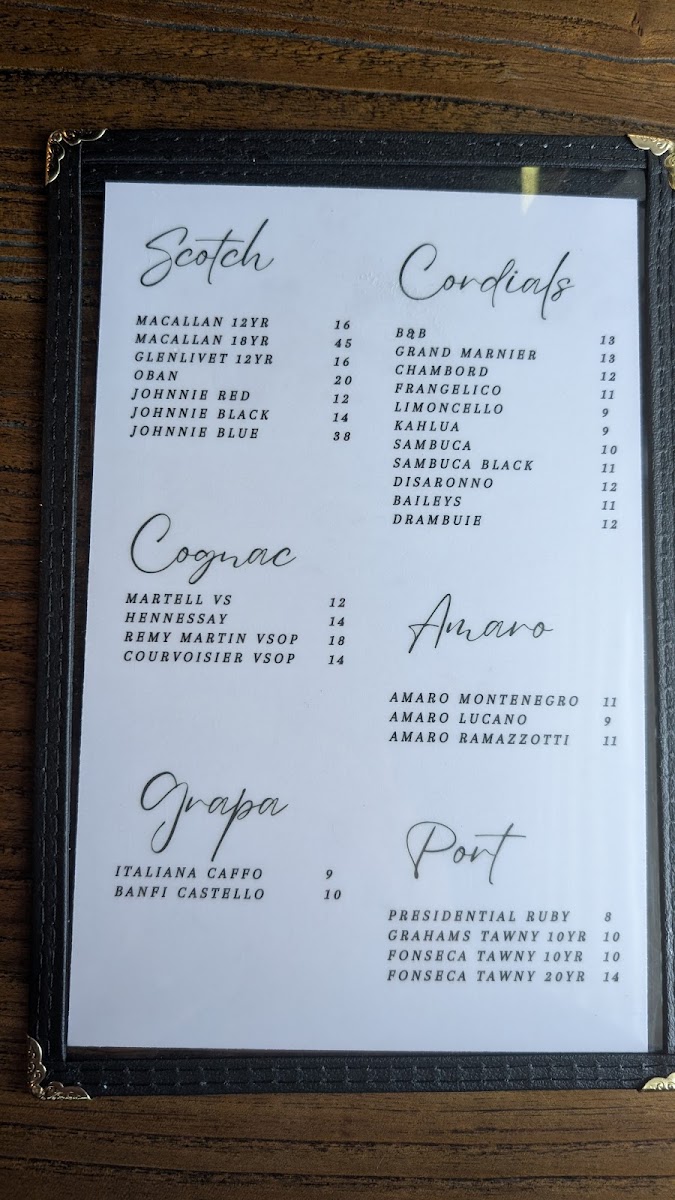 Scotch
MACALLAN 12YR 16
MACALLAN 18YR 45
GLENLIVET 12YR 16
OBAN 20
JOHNNIE RED 12
JOHNNIE BLACK 14
JOHNNIE BLUE 38
Cognac
MARTELL VS 12
HENNESSAY 14
REMY MARTIN VSOP 18
COURVOISIER VSOP 14
Grapa
ITALIANA CAFFO 9
BANFI CASTELLO 10
Cordials
B&B 13
GRAND MARNIER 13
CHAMBORD 12
FRANGELICO 11
LIMONCELLO 9
KAHLUA 9
SAMBUCA 10
SAMBUCA BLACK 11
DISARONNO 12
BAILEYS 11
DRAMBUIE 12
Amaro
AMARO MONTENEGRO 11
AMARO LUCANO 9
AMARO RAMAZZOTTI 11
Port
PRESIDENTIAL RUBY 8
GRAHAMS TAWNY 10YR 10
FONSECA TAWNY 10YR 10
FONSECA TAWNY 20YR 14